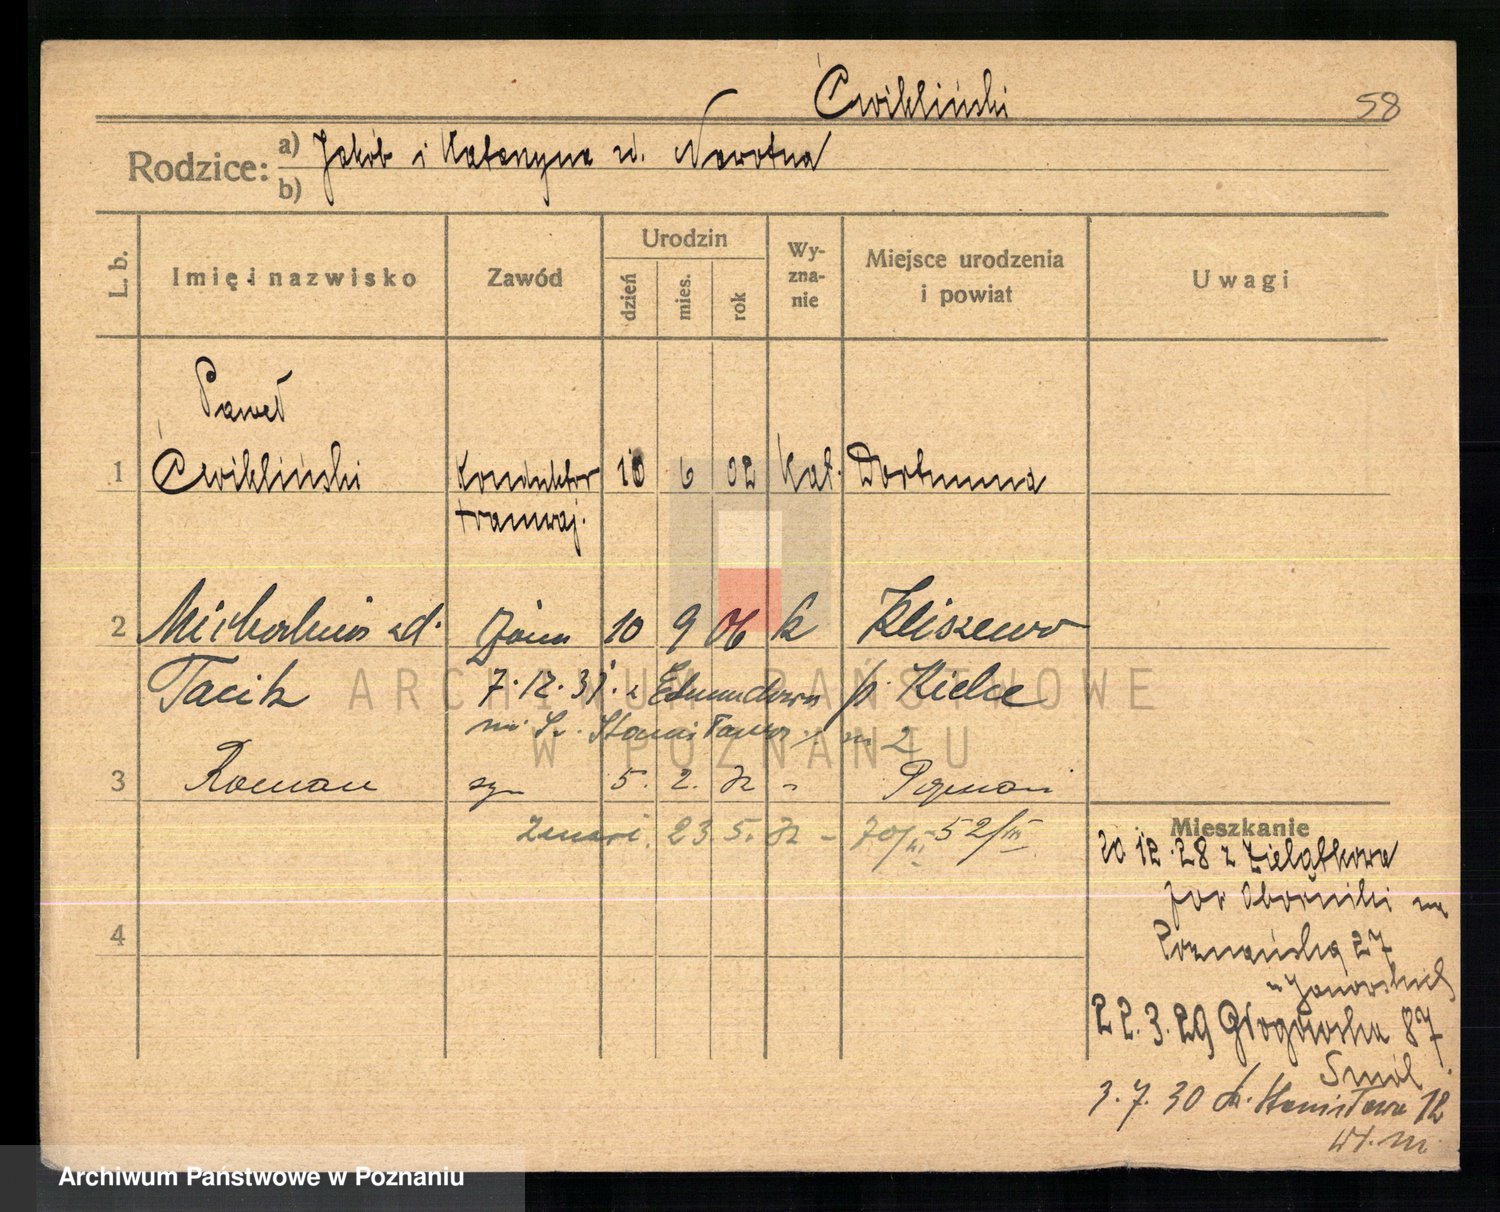 Ćwikliński
58
Rodzice: a) Jakób i Katarzyna zd. Nowotna
b)
L. b. Imię i nazwisko Zawód Urodzin dzień mies. rok Wyznanie Miejsce urodzenia i powiat Uwagi
Paweł
1 Ćwikliński Konduktor 10 6 02 Kat. Dortmund
tramwaj.
2 zd. żona 10 9 06 k
Tacik 7.12.31. z Edmundowa p. Kielce
na Św. Stanisława m 2
3 Roman syn 5. 2. 32 " Poznań
zmarł. 23.5.32 - 70/VI 52/III
4
Mieszkanie
20 12 28 z Zielątkowa
pow Oborniki na
Poznańską 27
u Janowskich
22.3.29 Głogowska 87
Smól
3.7.30 Św. Stanisława 12
wł. m.
ARCHIWUM PAŃSTWOWE
W POZNANIU
Archiwum Państwowe w Poznaniu